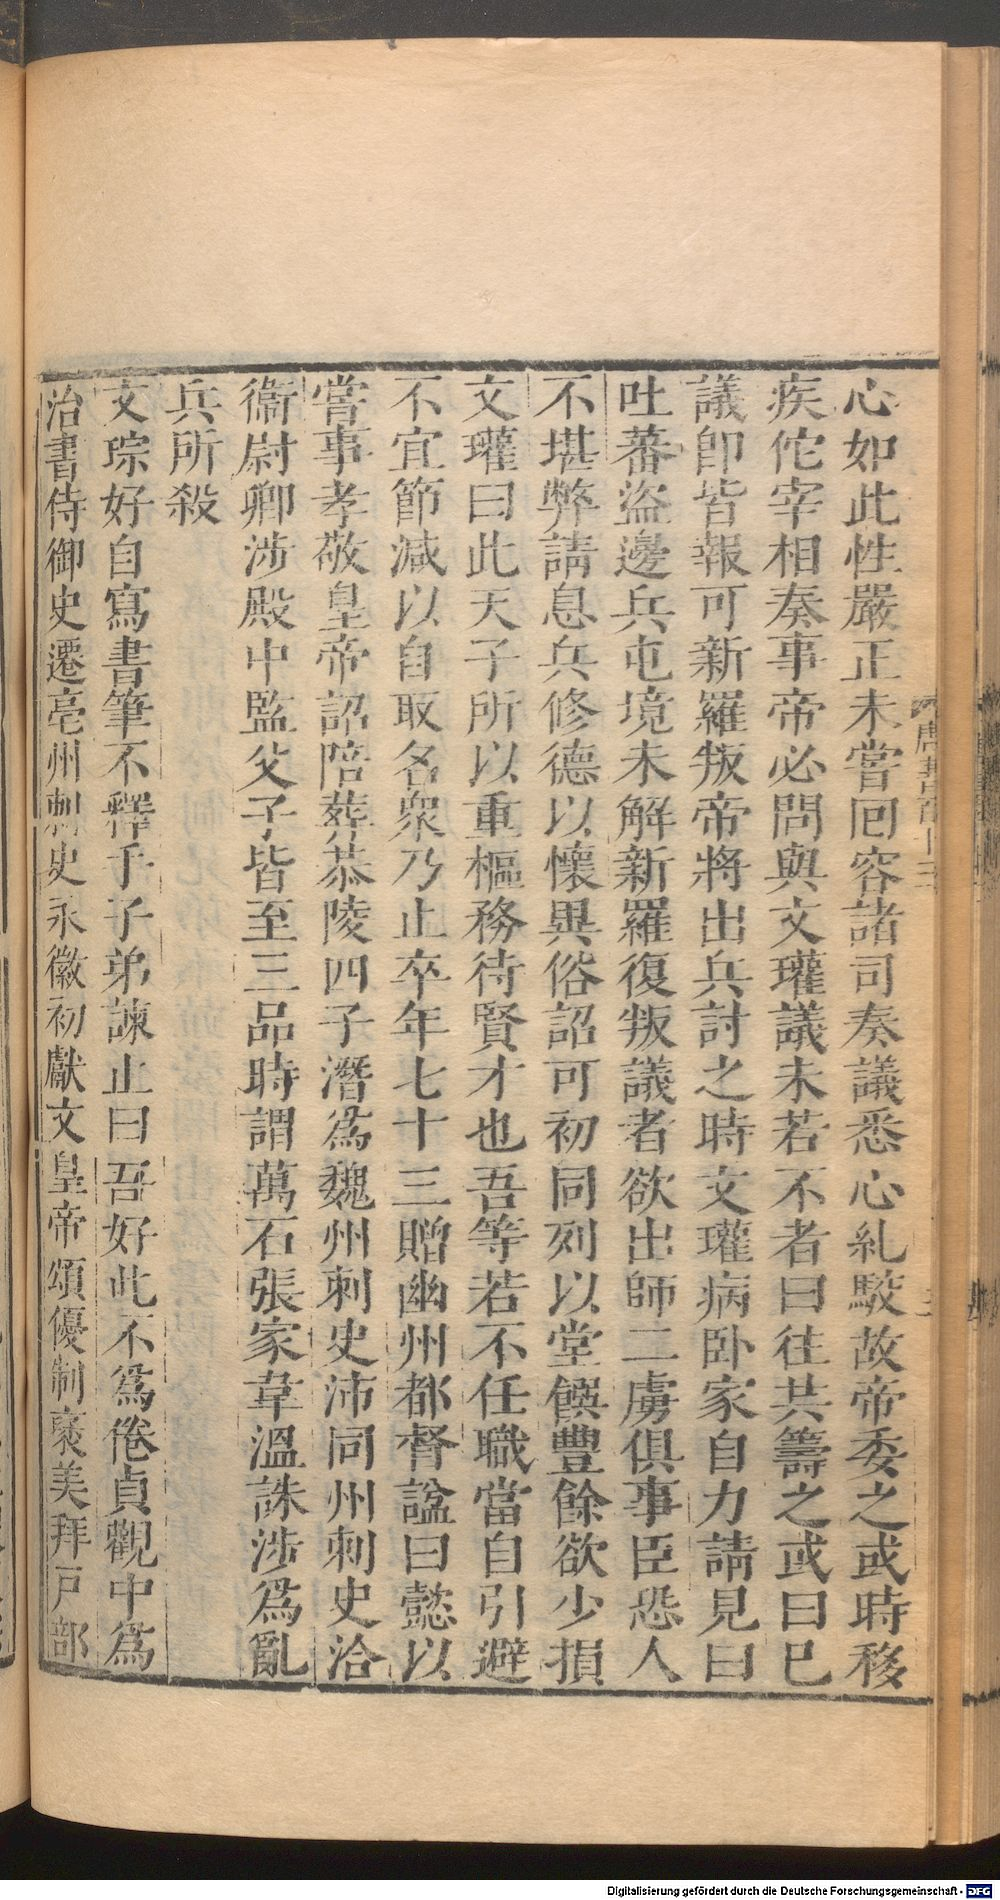 心如此性嚴正未嘗回容諸司奏議悉心糺駮故帝委之或時移
疾佗宰相奏事帝必問與文瓘議未若不者曰往共籌之或曰巳
議卽皆報可新羅叛帝將出兵討之時文瓘病卧家自力請見曰
吐蕃盜邊兵屯境未解新羅復叛議者欲出師二虜俱事臣恐人
不堪弊請息兵修德以懷異俗詔可初同列以堂饌豐餘欲少損
文瓘曰此天子所以重樞務待賢才也吾等若不任職當自引避
不宜節減以自取名衆乃止卒年七十三贈幽州都督諡曰懿以
嘗事孝敬皇帝詔陪葬恭陵四子潛爲魏州刺史沛同州刺史洽
衞尉卿涉殿中監父子皆至三品時謂萬石張家韋溫誅涉爲亂
兵所殺
文琮好自寫書筆不釋手子弟諫止曰吾好此不爲倦貞觀中爲
治書侍御史遷亳州刺史永徽初獻文皇帝頌優制襃美拜戸部
Digitalisierung gefördert durch die Deutsche Forschungsgemeinschaft - DFG